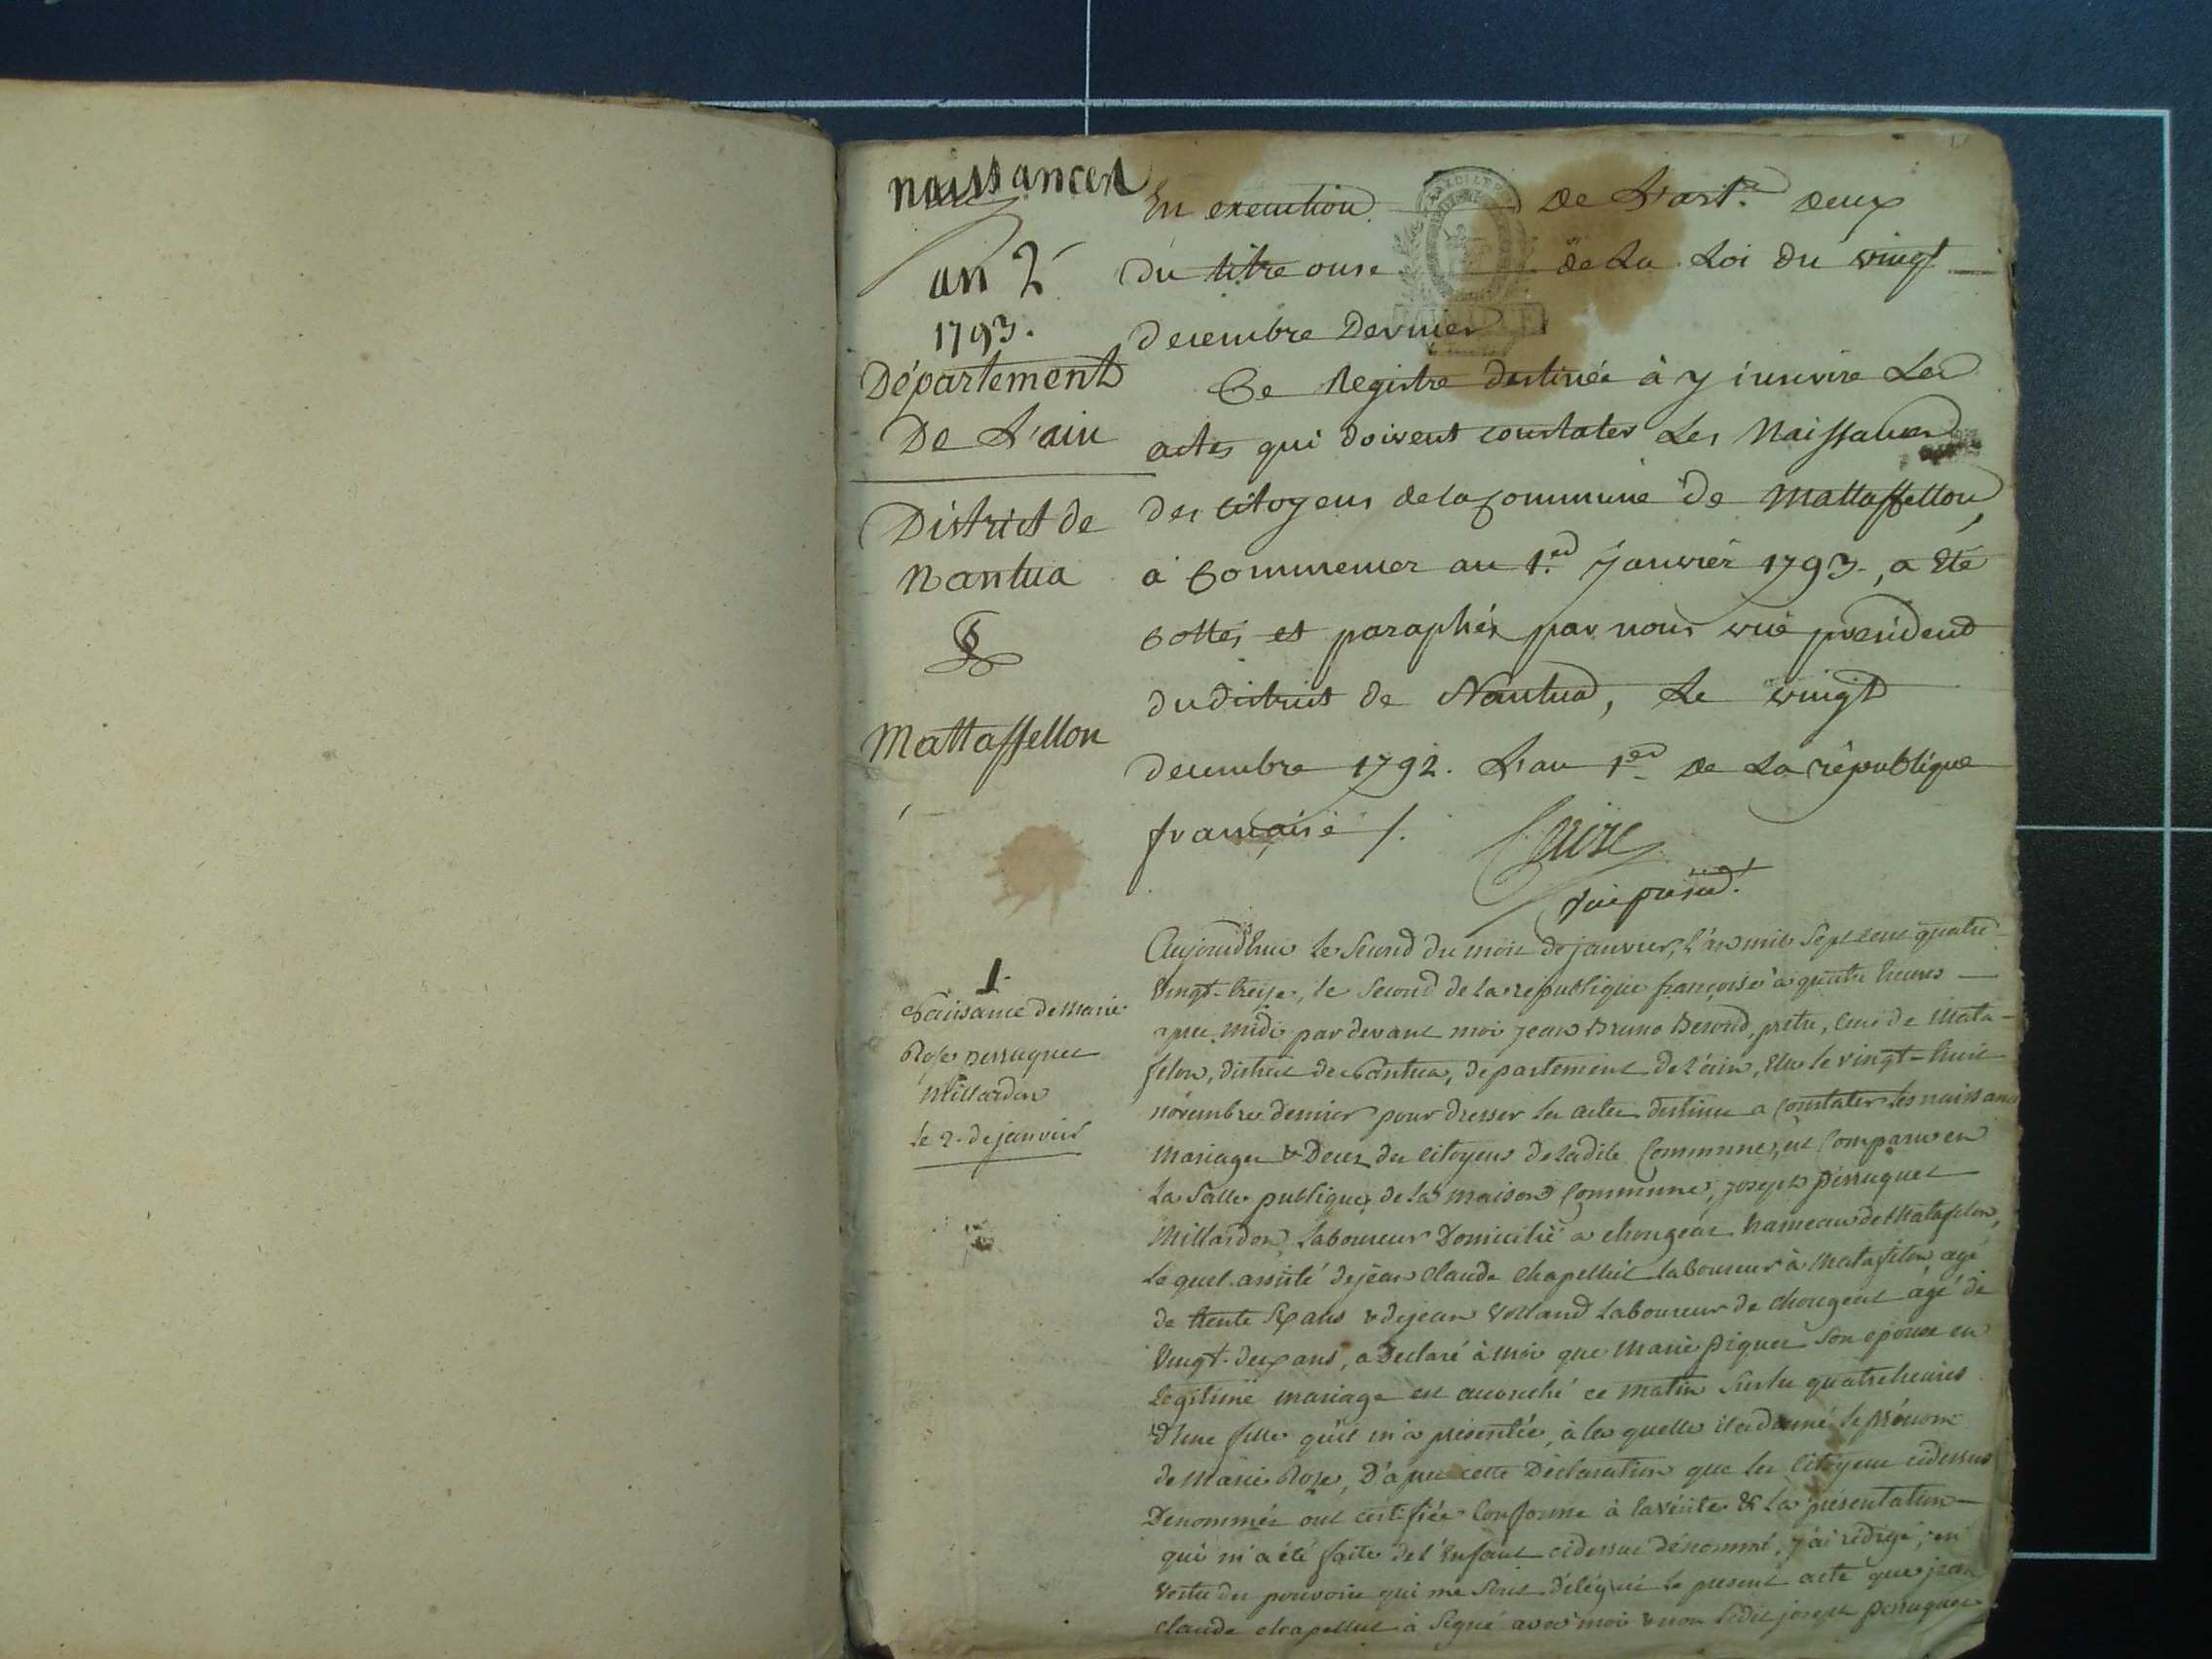 naissances
an 2
1793.
Département
De L'ain
District de
Nantua
Mattaffellon
En execution de L'art. deux
du titre onse de La Loi du vingt
decembre Dernier
Ce Registre destinée à y inscrire Les
actes qui doivent constater Les Naissances
des citoyens de la commune de Mattaffellon,
à Commencer au 1.er Janvier 1793., a Eté
cottés et paraphés par nous vice président
du district de Nantua, Le vingt
decembre 1792. L'an 1er de La république
française /.
vice présid.t
1.
Naissance de Marie
Rose perruquet
Millardon
le 2. de janvier
Aujourd'hui le Second du mois de janvier, l'an mil Sept cent quatre
Vingt-treize, le Second de la republique françoise à quatre heures
apres midi par devant moi jean Bruno prêtre, Curé de Mata-
felon, district de Nantua, departement de l'ain, Elu le vingt-huit
novembre dernier pour dresser les actes destinés a Constater les naissances
Mariages & Deces des citoyens de ladite Commune, est Comparu en
la Salle publique de la maison Commune, joseph perruquet
Millardon, laboureur Domicilié a chougeat hameau de Matafelon,
lequel assisté de jean Claude Chapelluit laboureur à Matafelon, agé
de trente Six ans & de jean Volland Laboureur de chougeat agé de
Vingt-deux ans, a Declaré à moi que Marie piquet Son epouse en
Legitime mariage est accouché ce matin Sur les quatre heures
d'une fille qu'il m'a présentée, à la quelle il a donné le prénom
de Marie Rose, D'apres cette Déclaration que les Citoyens cidessus
Denommés ont certifiée Conforme à la vérité & la présentation
qui m'a été faite de l'Enfant cidessus dénommé, j'ai rédigé, en
Vertu des pouvoirs qui me Sont délégués le present acte que jean
claude chapelluit à Signé avec moi & non ledit joseph perruquet